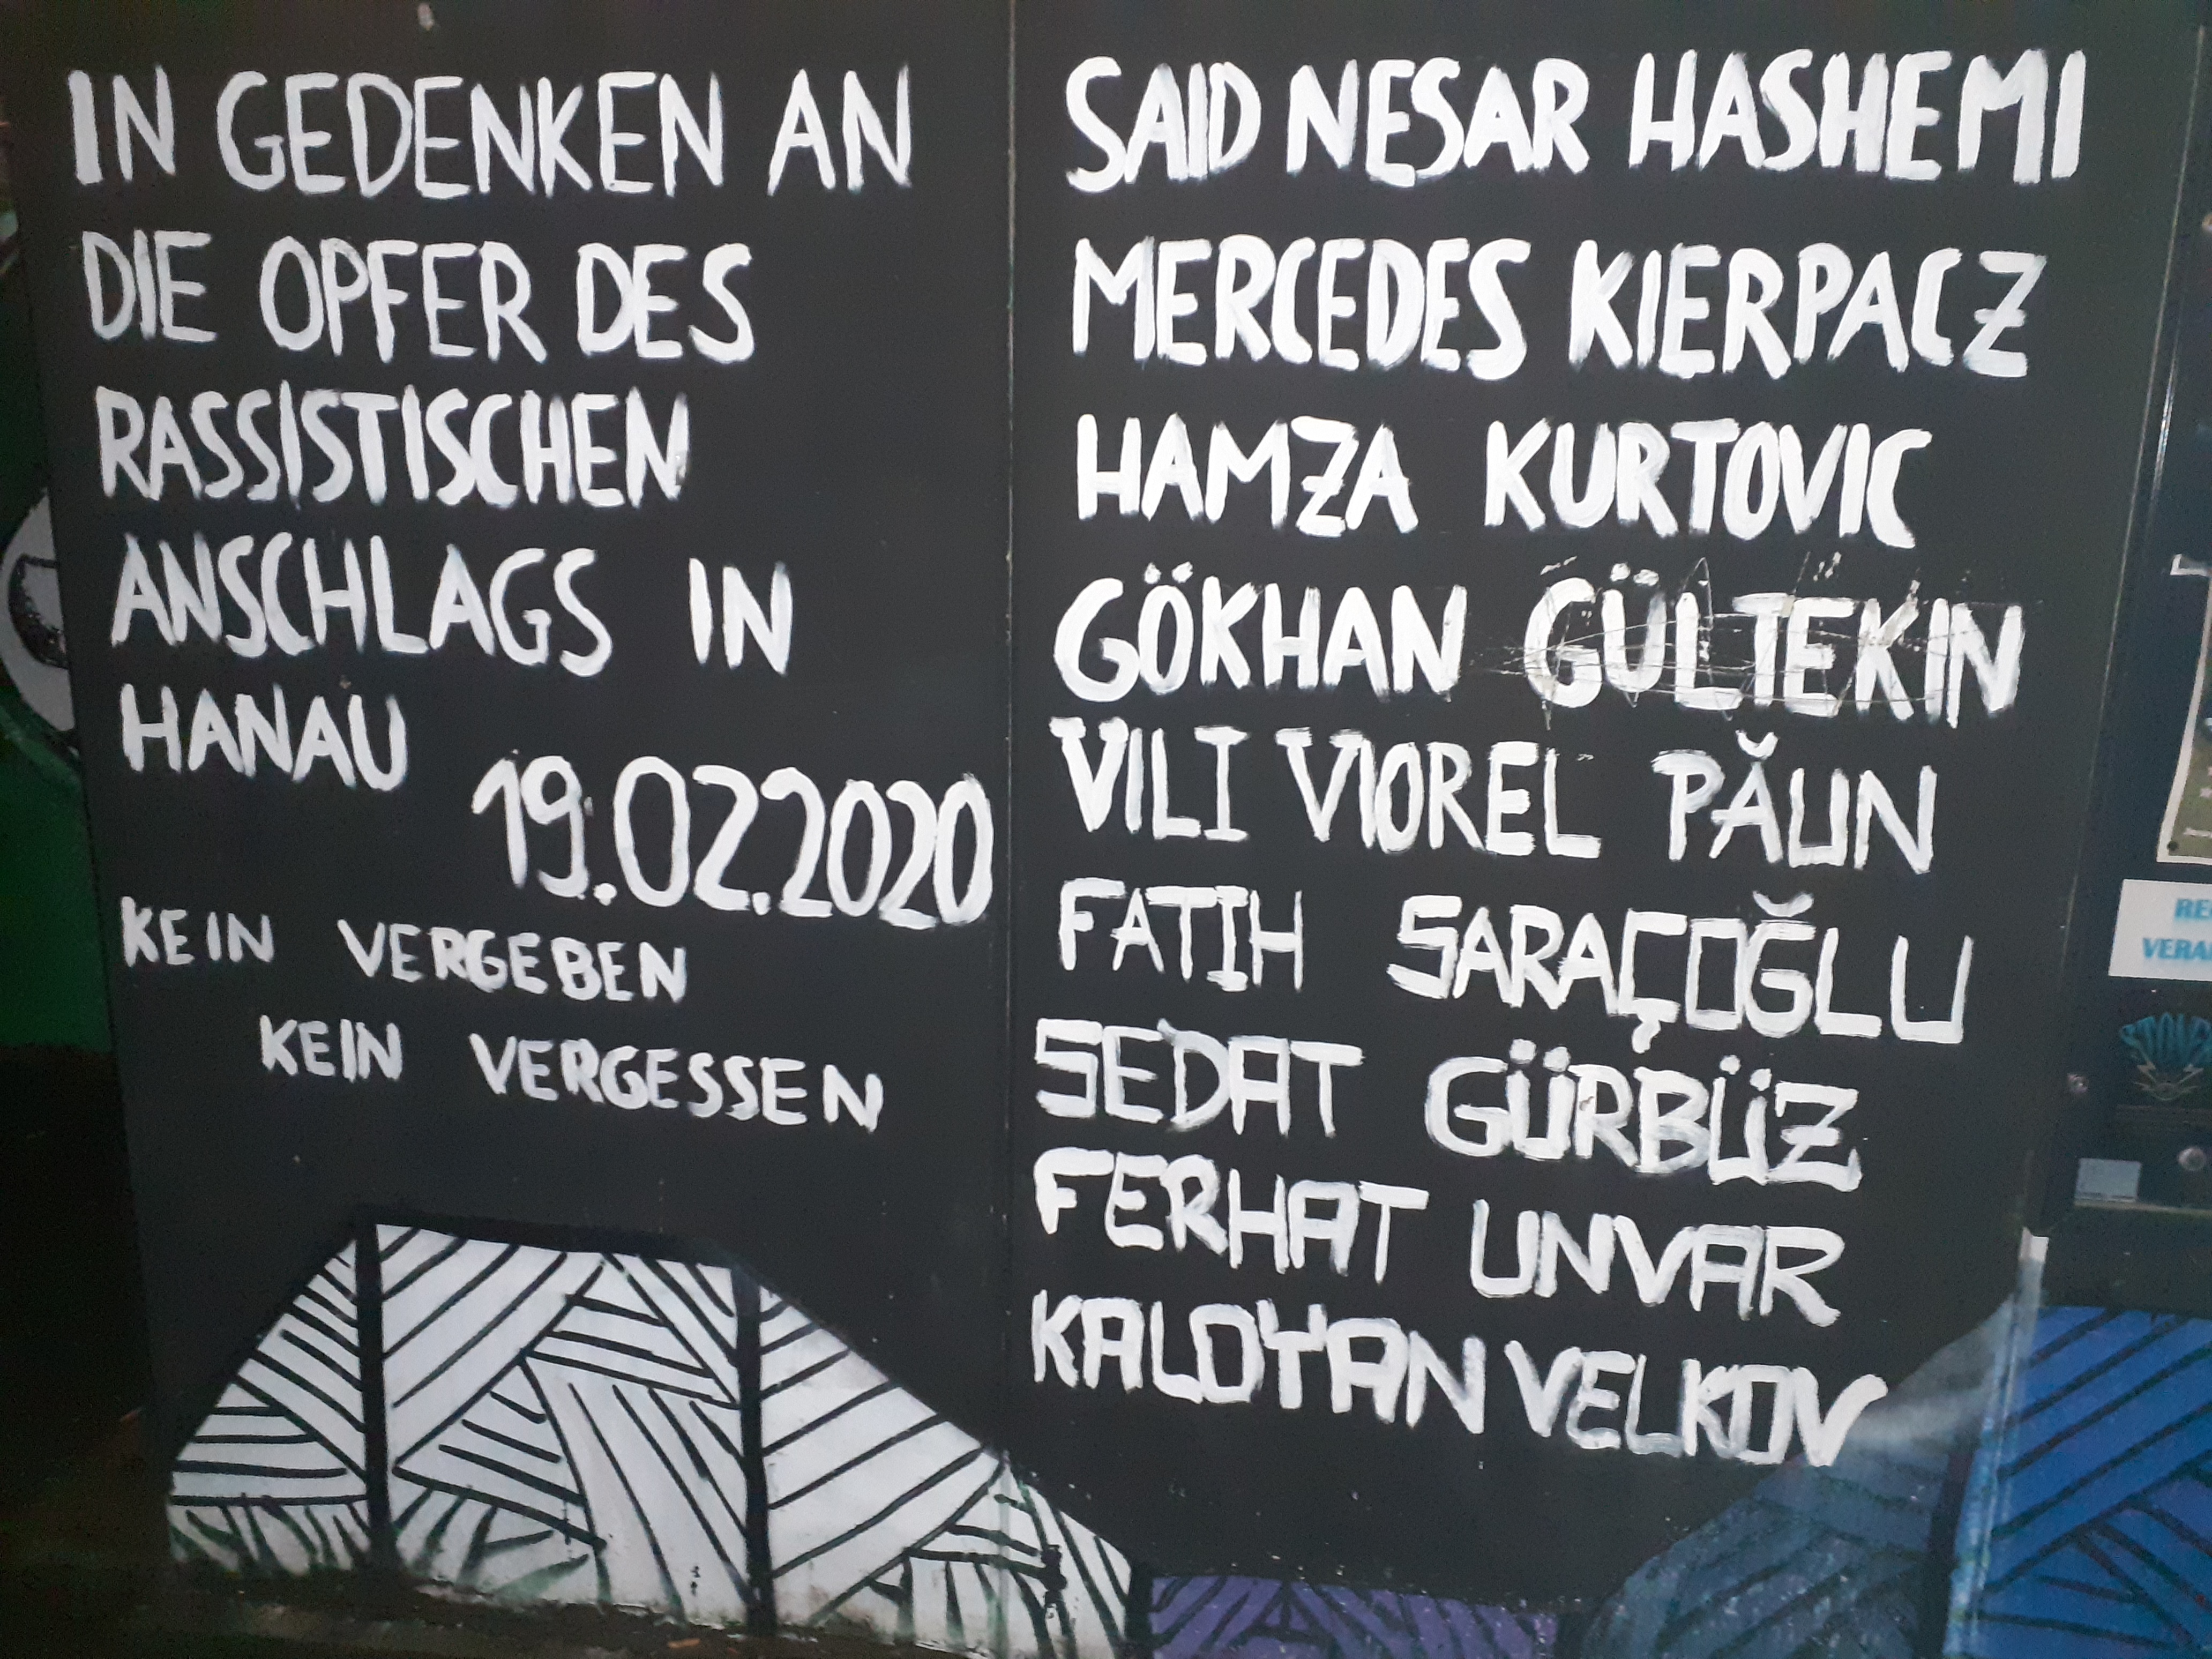 IN GEDENKEN AN
DIE OPFER DES
RASSISTISCHEN
ANSCHLAGS IN
HANAU
19.02.2020
KEIN VERGEBEN
KEIN VERGESSEN
SAID NESAR HASHEMI
MERCEDES KIERPACZ
HAMZA KURTOVIC
GÖKHAN GÜLTEKIN
VILI VIOREL PĂUN
FATIH SARAÇOĞLU
SEDAT GÜRBÜZ
FERHAT UNVAR
KALOYAN VELKOV